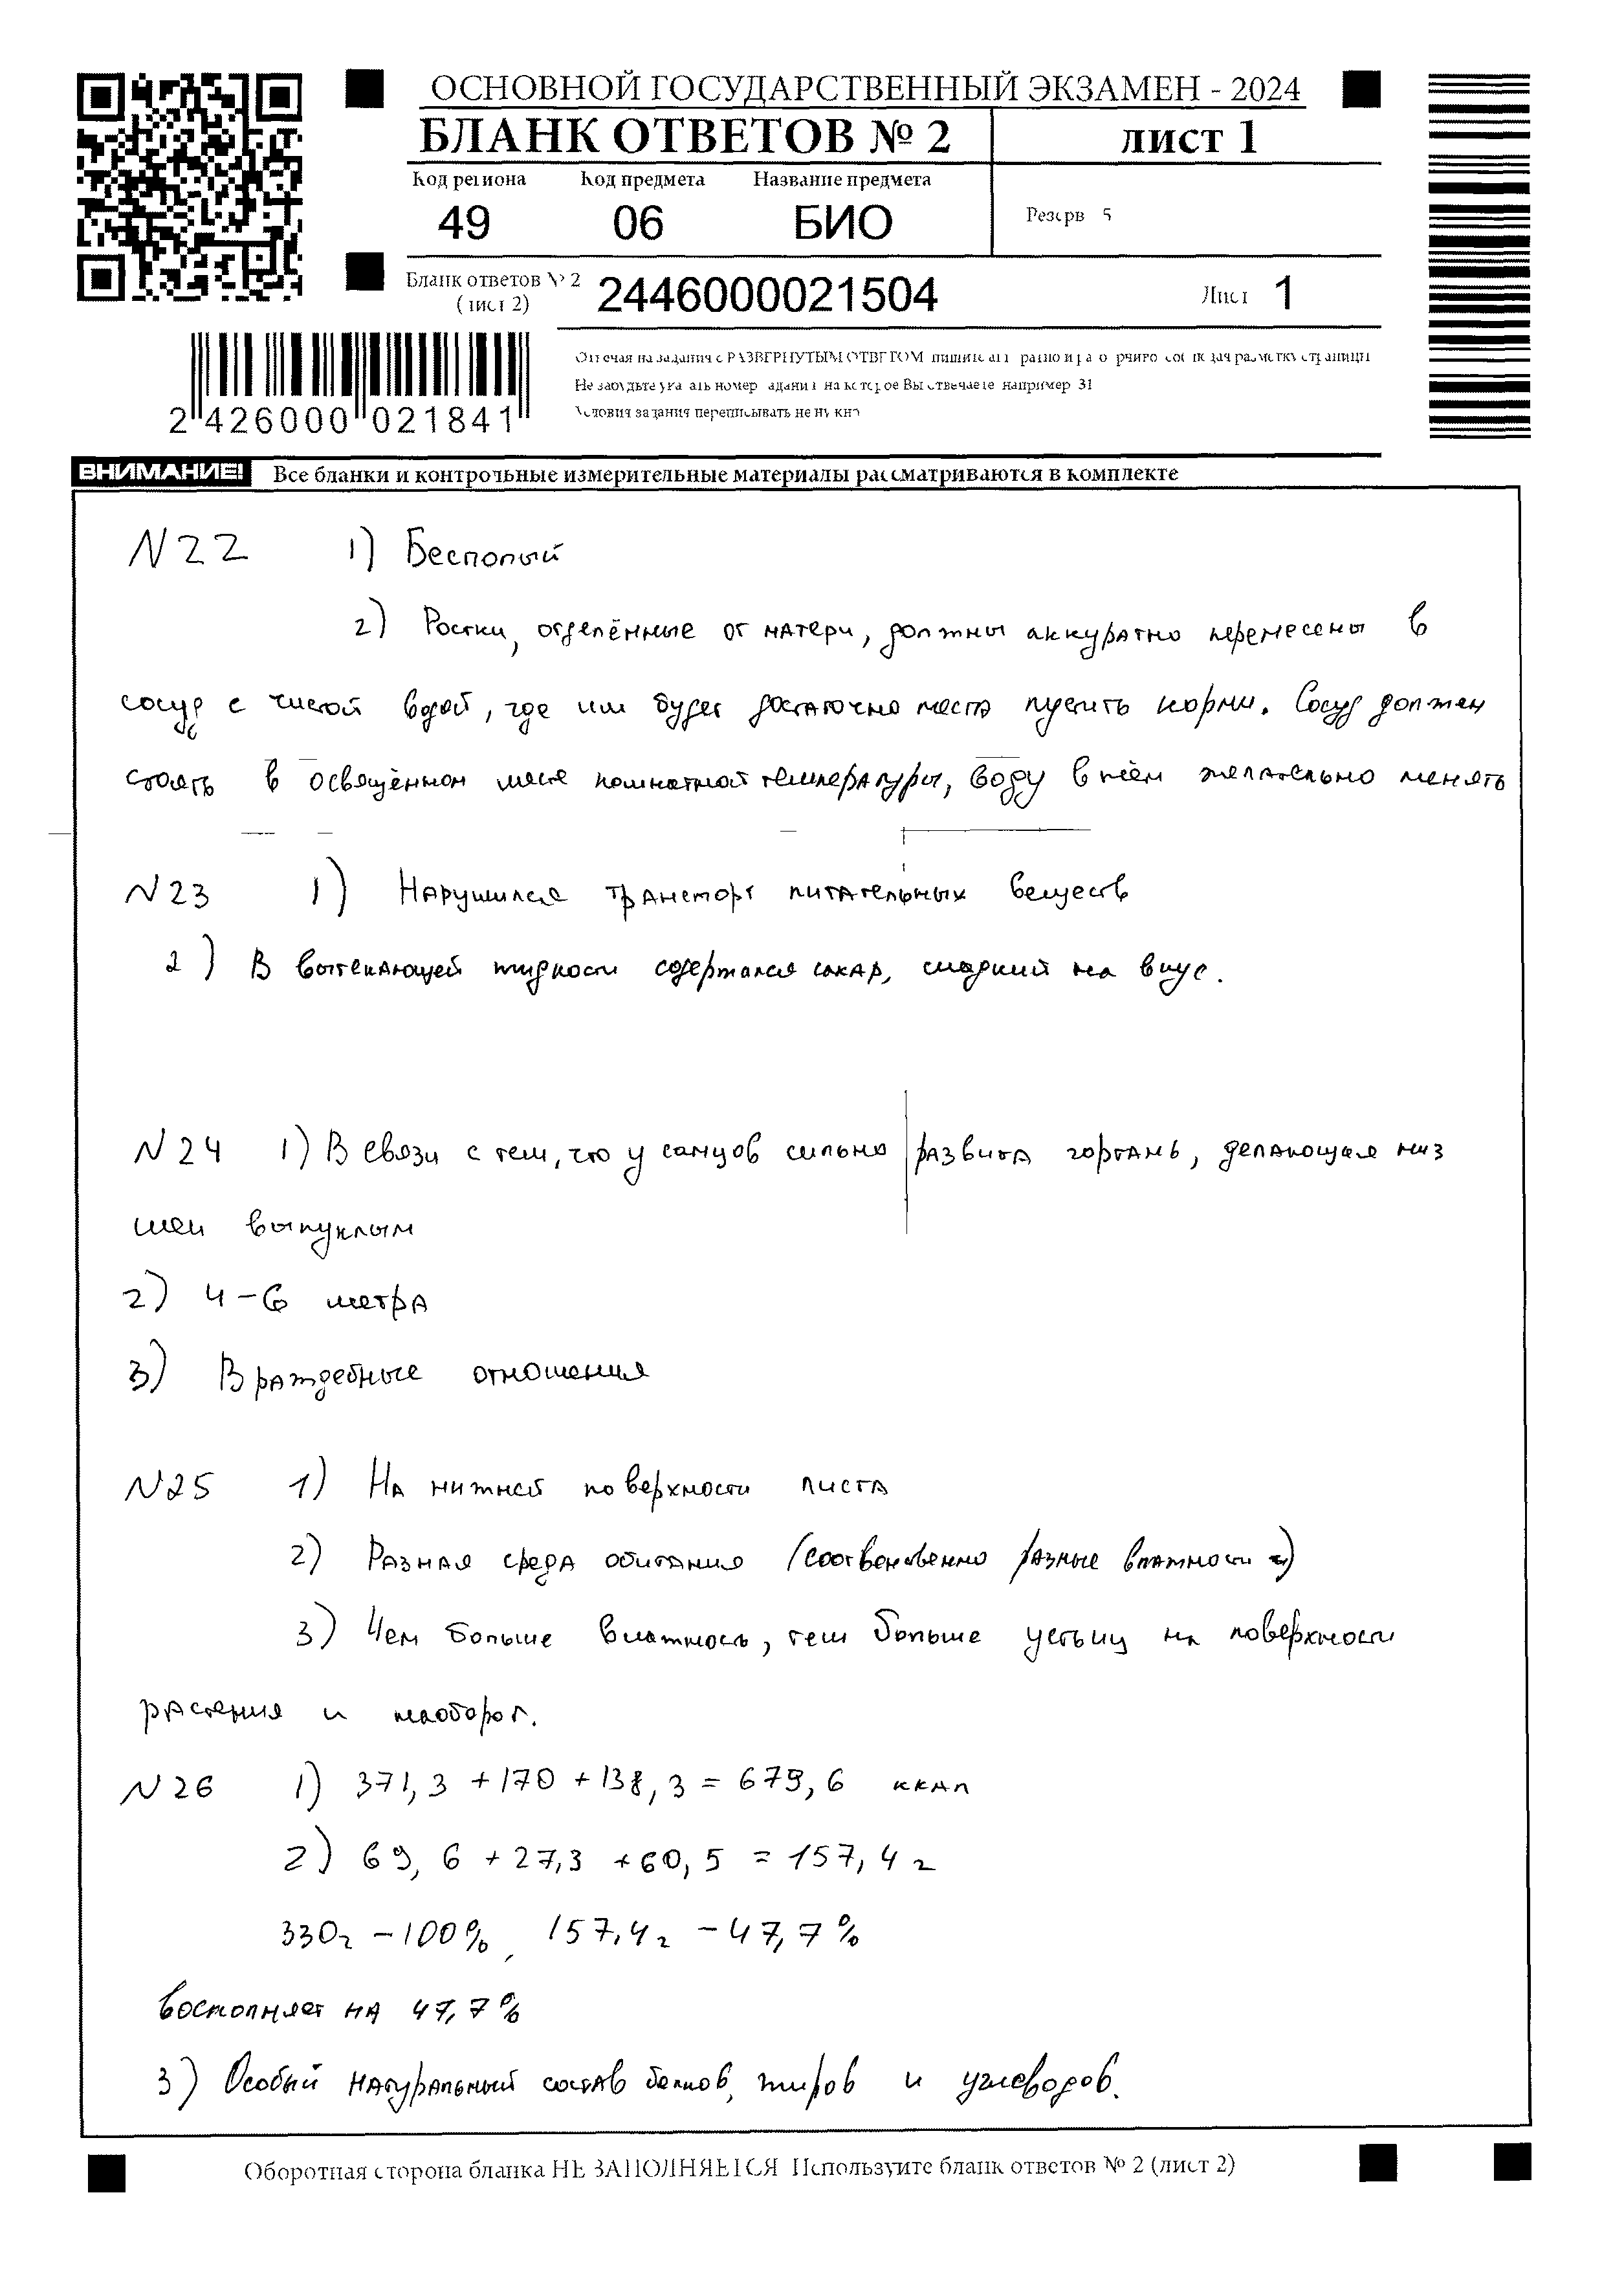 ОСНОВНОЙ ГОСУДАРСТВЕННЫЙ ЭКЗАМЕН - 2024
БЛАНК ОТВЕТОВ № 2
лист 1
Код региона Код предмета Название предмета
49 06 БИО
Резерв 5
Бланк ответов № 2
(лист 2)
2446000021504
Лист 1
2 426000 021841
Отвечая на задания с РАЗВЕРНУТЫМ ОТВЕТОМ, пишите аккуратно и разборчиво, соблюдая разметку страницы
Не забудьте указать номер задания, на которое Вы отвечаете, например, 31
Условия задания переписывать не нужно
ВНИМАНИЕ! Все бланки и контрольные измерительные материалы рассматриваются в комплекте
N22 1) Бесполый
2) Ростки, отделённые от матери, должны аккуратно перемесены в
сосуд с чистой водой, где им будет достаточно места пустить корни. Сосуд должен
стоять в освящённом месте комнатной температуры, воду в нём желательно менять
N23 1) Нарушился транспорт питательных веществ
2) В вытекающей жидкости содержался сахар, сладкий на вкус.
N24 1) В связи с тем, что у самцов сильно развита гортань, делающая низ
шеи выпуклым
2) 4-6 метра
3) Враждебные отношения
N25 1) На нижней поверхности листа
2) Разная среда обитания (соотвенственно разные влажности)
3) Чем больше влажность, тем больше устьиц на поверхности
растения и наоборот.
N26 1) 371,3 + 170 + 138,3 = 679,6 ккал
2) 69,6 + 27,3 + 60,5 = 157,4 г
330г - 100%, 157,4г - 47,7%
восполняет на 47,7%
3) Особый натуральный состав белков, жиров и углеводов.
Оборотная сторона бланка НЕ ЗАПОЛНЯЕТСЯ Используите бланк ответов № 2 (лист 2)